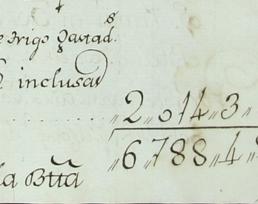 e trigo gastad.s
inclusas
"2"014"3"
"6"788"4"
la Btta